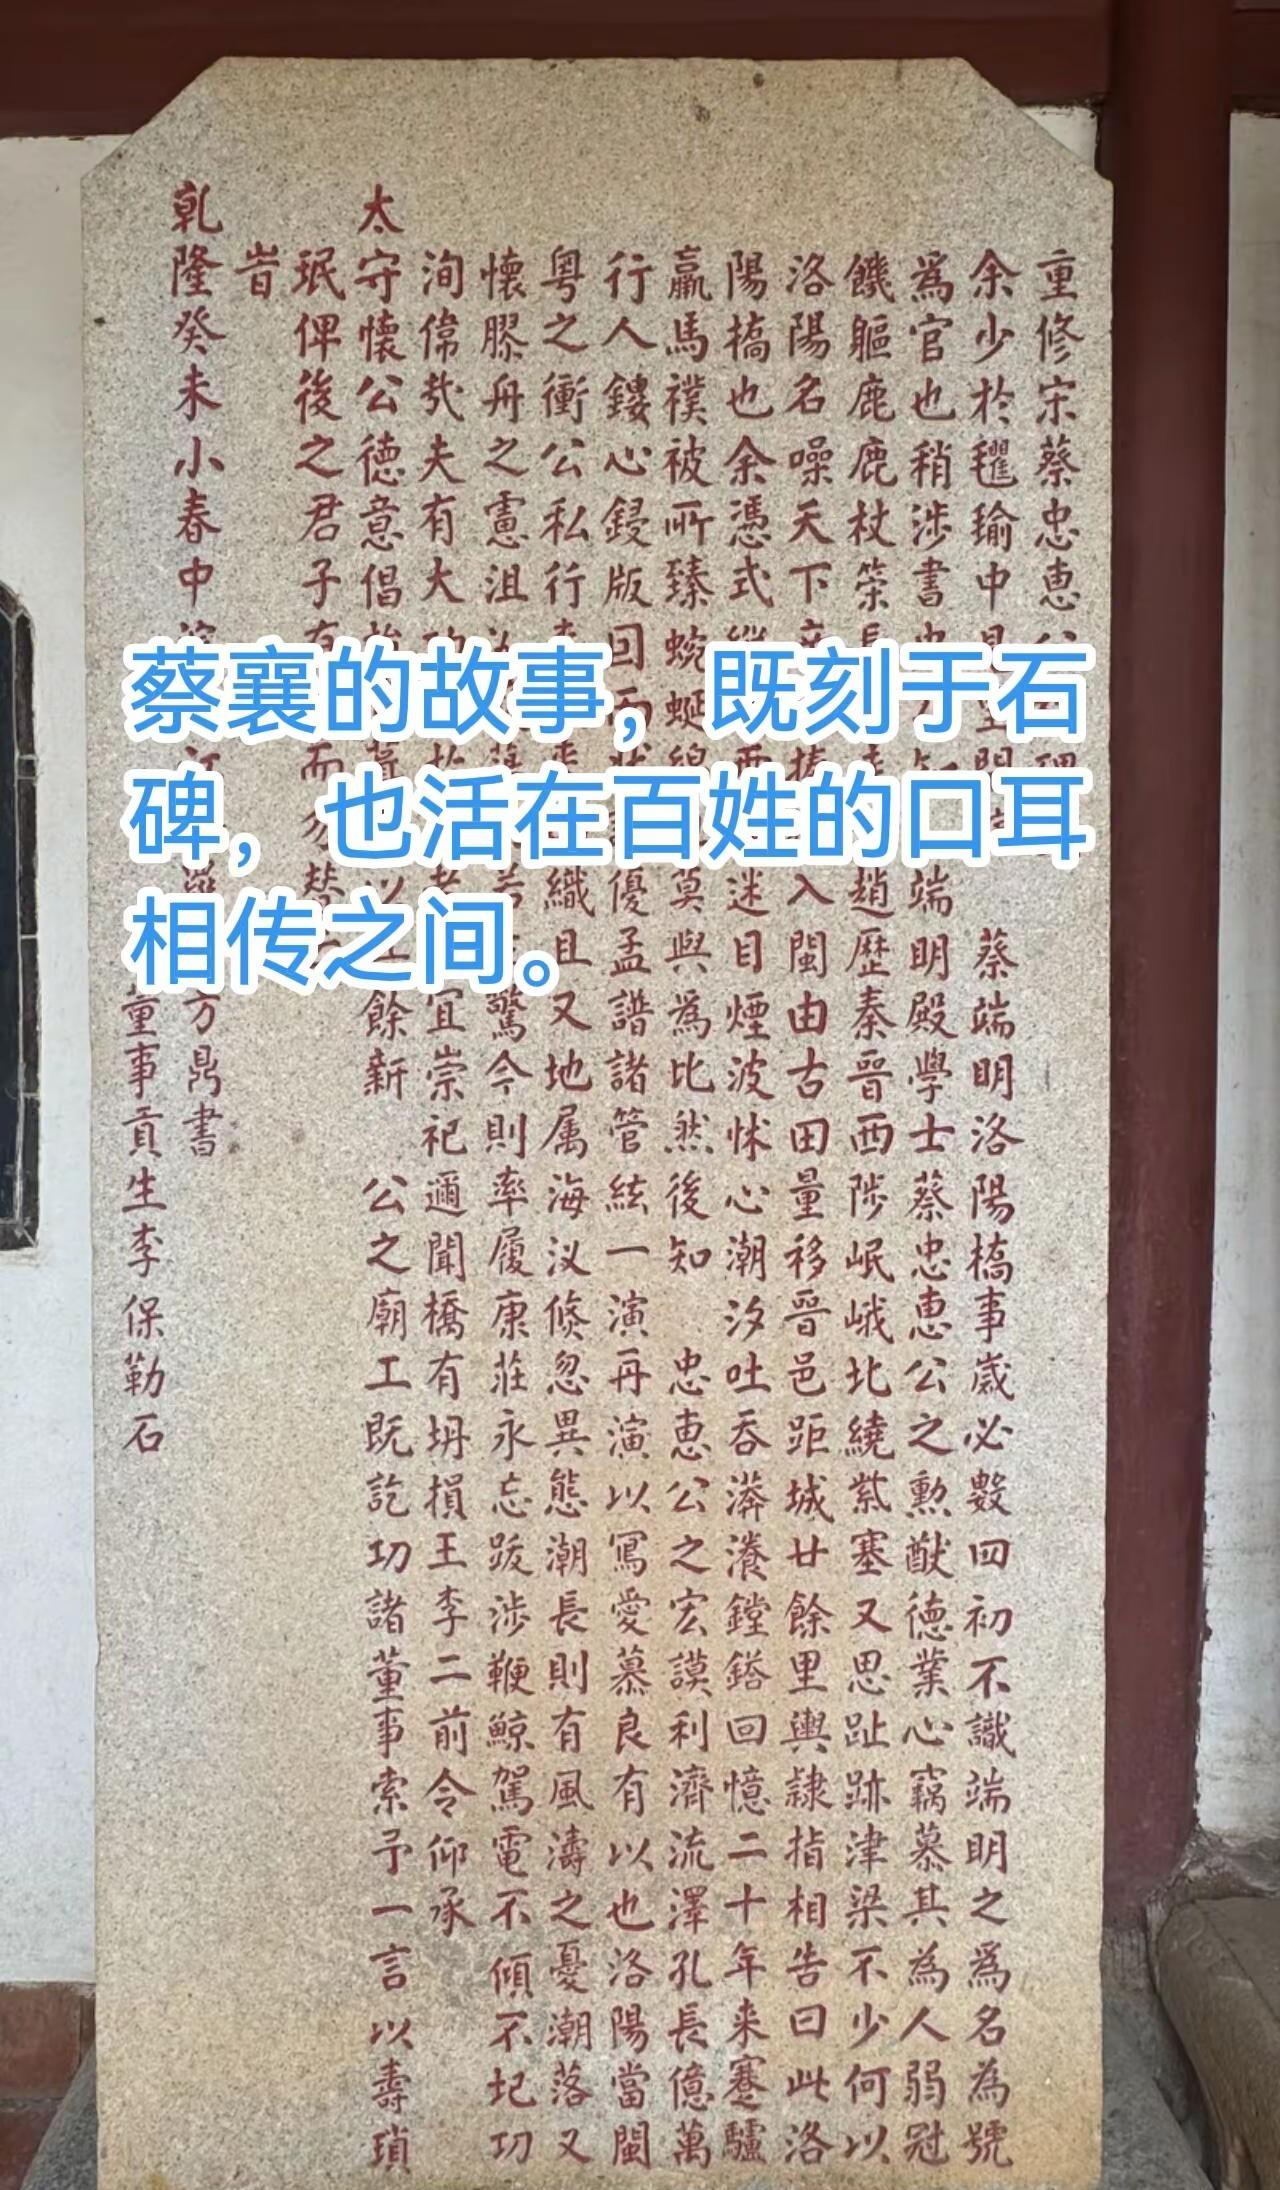 蔡襄的故事，既刻于石
碑，也活在百姓的口耳
相传之间。
重修宋蔡忠惠
余少於氍瑜中 蔡端明洛陽橋事歲必數四初不識端明之爲名為號
爲官也稍涉書 端明殿學士蔡忠惠公之勲猷德業心竊慕其為人弱冠
饑軀鹿鹿杖策 趙歷秦晉西陟岷峨北繞紫塞又思趾跡津梁不少何以
洛陽名噪天下 入閩由古田量移晉邑距城廿餘里輿隷指相告曰此洛
陽橋也余憑式 迷目煙波怵心潮汐吐吞漭瀁鏜鎝回憶二十年来蹇驢
羸馬襆被所臻蜿蜒 莫與為比然後知 忠惠公之宏謨利濟流澤孔長億萬
行人鏤心鋟版回 優孟譜諸管絃一演再演以寫愛慕良有以也洛陽當閩
粤之衝公私行 織且又地属海汊倐忽異態潮長則有風濤之憂潮落又
懷膠舟之慮沮 驚今則率履康莊永忘跋涉鞭鯨駕電不傾不圮功
洵偉㢤夫有大 宜崇祀邇聞橋有坍損王李二前令仰承
太守懷公德意倡 餘新 公之廟工既訖功諸董事索予一言以壽瑣
珉俾後之君子有 而勿替
旹
乾隆癸未小春中 方鼎書
董事貢生李保勒石